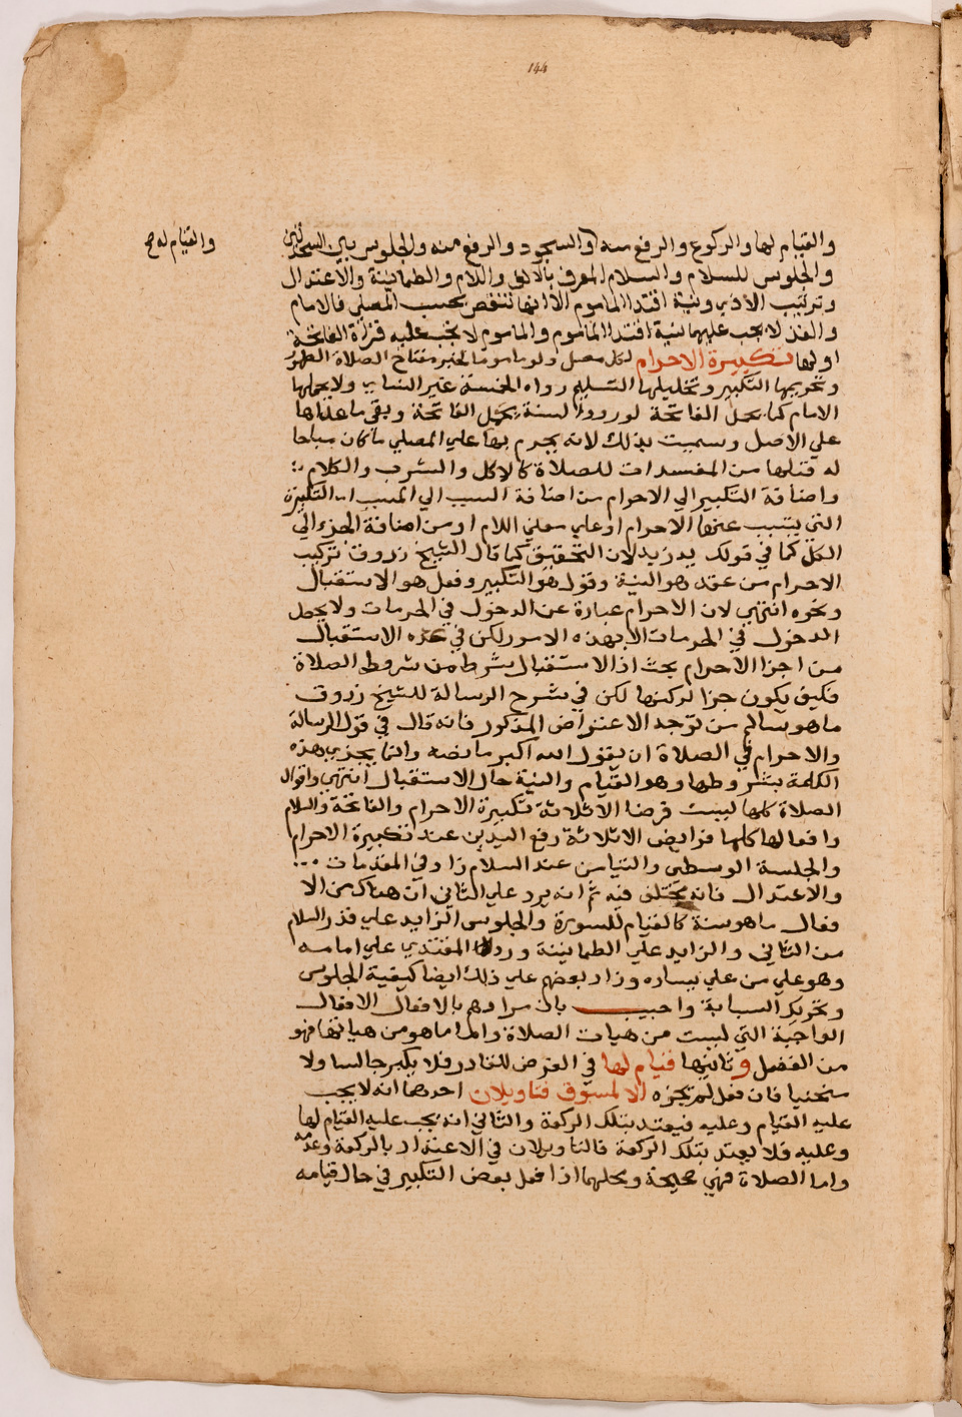 ١٤٤
والقيام لها والركوع والرفع منه والسجود والرفع منه والجلوس بين السجدتين
والقيام له صح
والجلوس للسلام والسلام المعرف بالالف واللام والطمانينة والاعتدال
وترتيب الاداء ونية اقتدا الماموم الا انها تنقص بحسب المصلي فالامام
والفذ لا يجب عليهما نية اقتدا الماموم والماموم لا يجب عليه قراة الفاتحة
اولها تكبيرة الاحرام لكل مصل ولو ماموما لخبر مفتاح الصلاة الطهور
وتحريمها التكبير وتحليلها التسليم رواه الخمسة غير النساي ولا يحملها
الامام كما يحمل الفاتحة لورود السنة بحمل الفاتحة وبقي ما عداها
علي الاصل وسميت بذلك لانه يحرم بها علي المصلي ما كان مباحا
له قبلها من المفسدات للصلاة كالاكل والشرب والكلام
واضافة التكبير الي الاحرام من اضافة السبب الي المسبب اي التكبيرة
التي يتسبب عنها الاحرام او علي معني اللام او من اضافة الجزء الي
الكل كما في قولك يد زيد لان التحقيق كما قال الشيخ زروق تركيب
الاحرام من عقد هو النية وقول هو التكبير وفعل هو الاستقبال
ونحوه انتهي لان الاحرام عبارة عن الدخول في الحرمات ولا يحصل
الدخول في الحرمات الا بهذه الامور لكن في عده الاستقبال
من اجزا الاحرام بحث اذ الاستقبال شرط من شروط الصلاة
فكيف يكون جزا لركنها لكن في شرح الرسالة للشيخ زروق
ما هو سالم من توجد الاعتراض المذكور فانه قال في قول الرسالة
والاحرام في الصلاة ان يقول الله اكبر ما نصه وانما يجزي هذه
الكلمة بشروطها وهو القيام والنية حال الاستقبال انتهي واقوال
الصلاة كلها ليست فرضا الا ثلاثة تكبيرة الاحرام والفاتحة والسلام
وافعالها كلها فرايض الا ثلاثة رفع اليدين عند تكبيرة الاحرام
والجلسة الوسطي والتيامن عند السلام زاد في المقدمات
والاعتدال فانه مختلف فيه ثم انه يرد علي الثاني ان هناك من الا
فعال ما هو سنة كالقيام للسورة والجلوس الزايد علي قدر السلام
من الثاني والزايد علي الطمانينة ورد المقتدي علي امامه
وهو علي من علي يساره وزاد بعضهم علي ذلك ايضا كيفية الجلوس
وتحريك السبابة واجيب بان مرادهم بالافعال الافعال
الواجبة التي ليست من هيات الصلاة واما ما هو من هياتها فهو
من الفضل وثانيها قيام لها في الفرض للقادر فلا يكبر جالسا ولا
منحنيا فان فعل لم تجزه الا لمسبوق فتاويلان احدهما انه لا يجب
عليه القيام وعليه فيعتد بتلك الركعة والثاني انه يجب عليه القيام لها
وعليه فلا يعتد بتلك الركعة فالتاويلان في الاعتداد بالركعة وعدمه
واما الصلاة فهي صحيحة ومحلهما اذا فعل بعض التكبير في حال قيامه